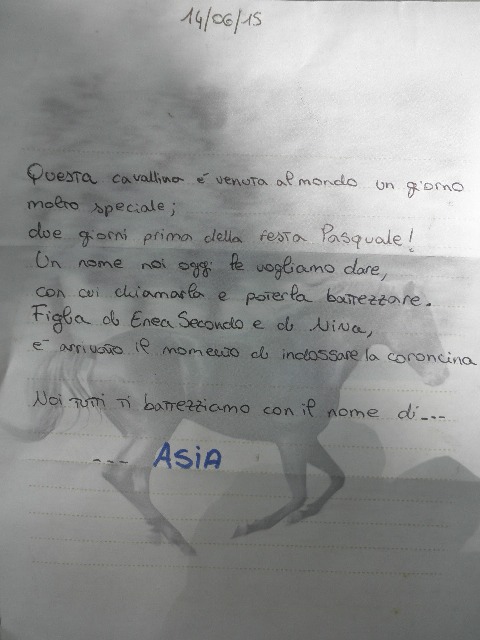 14/06/15
Questa cavallina è venuta al mondo un giorno
molto speciale;
due giorni prima della festa Pasquale!
Un nome noi oggi le vogliamo dare,
con cui chiamarla e poterla battezzare.
Figlia di Enea Secondo e di Nina,
è arrivato il momento di indossare la coroncina
Noi tutti ti battezziamo con il nome di---
--- ASIA